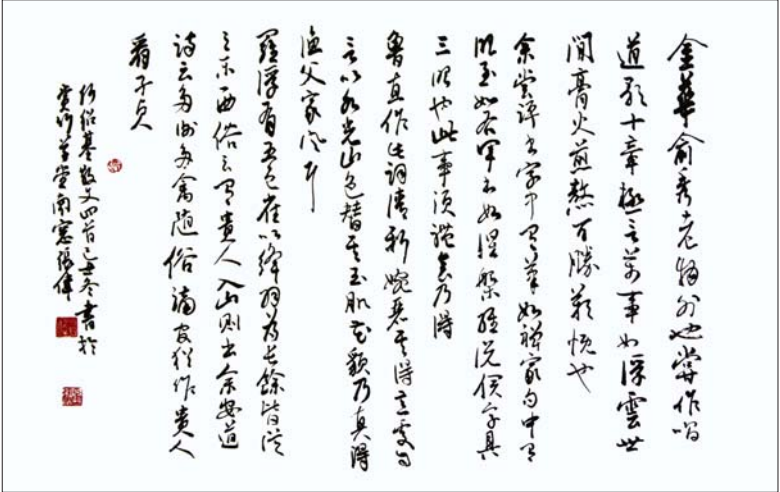 金華俞秀老物外也嘗作唱
道歌十章極言萬事如浮雲世
間膏火煎熬可勝歎也
余嘗評書字中有筆如禪家句中有
眼至如右軍書如涅槃經說伊字具
三眼也此事須體會乃得
魯直作此詞清新婉麗其得意處自
言以水光山色替其玉肌花貌乃真得
漁父家風耳
羅浮有五色雀以絳羽為長餘皆從
之東西俗云有貴人入山則出余安道
詩云多謝禽隨俗謫官猶作貴人
看子貞
何紹基散文四首己丑冬書於
竹草堂南窗張偉